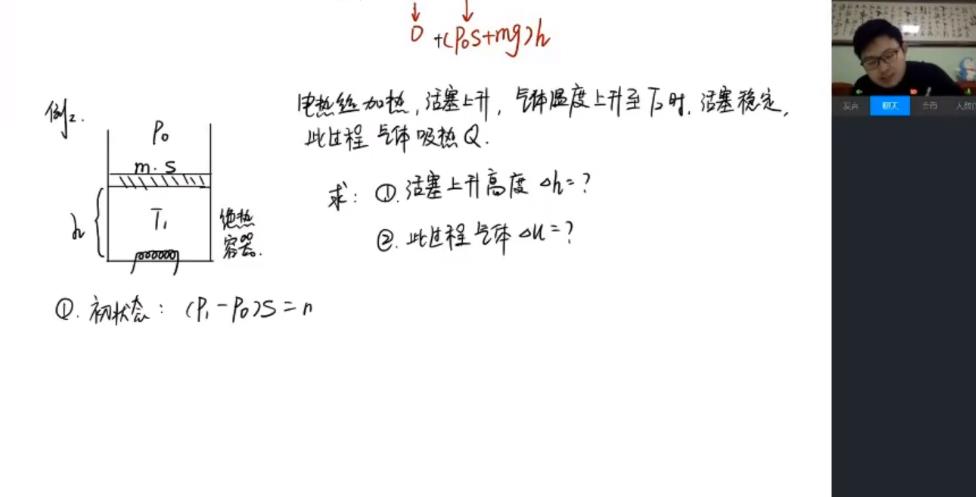 0 + (P₀S+mg)h
例2.
电热丝加热,活塞上升,气体温度上升至T₂时,活塞稳定,
此过程气体吸热Q.
P₀
m·S
h
T₁
绝热
容器.
求:①.活塞上升高度Δh=?
②.此过程气体Δu=?
①.初状态:(P₁-P₀)S=
发言
聊天